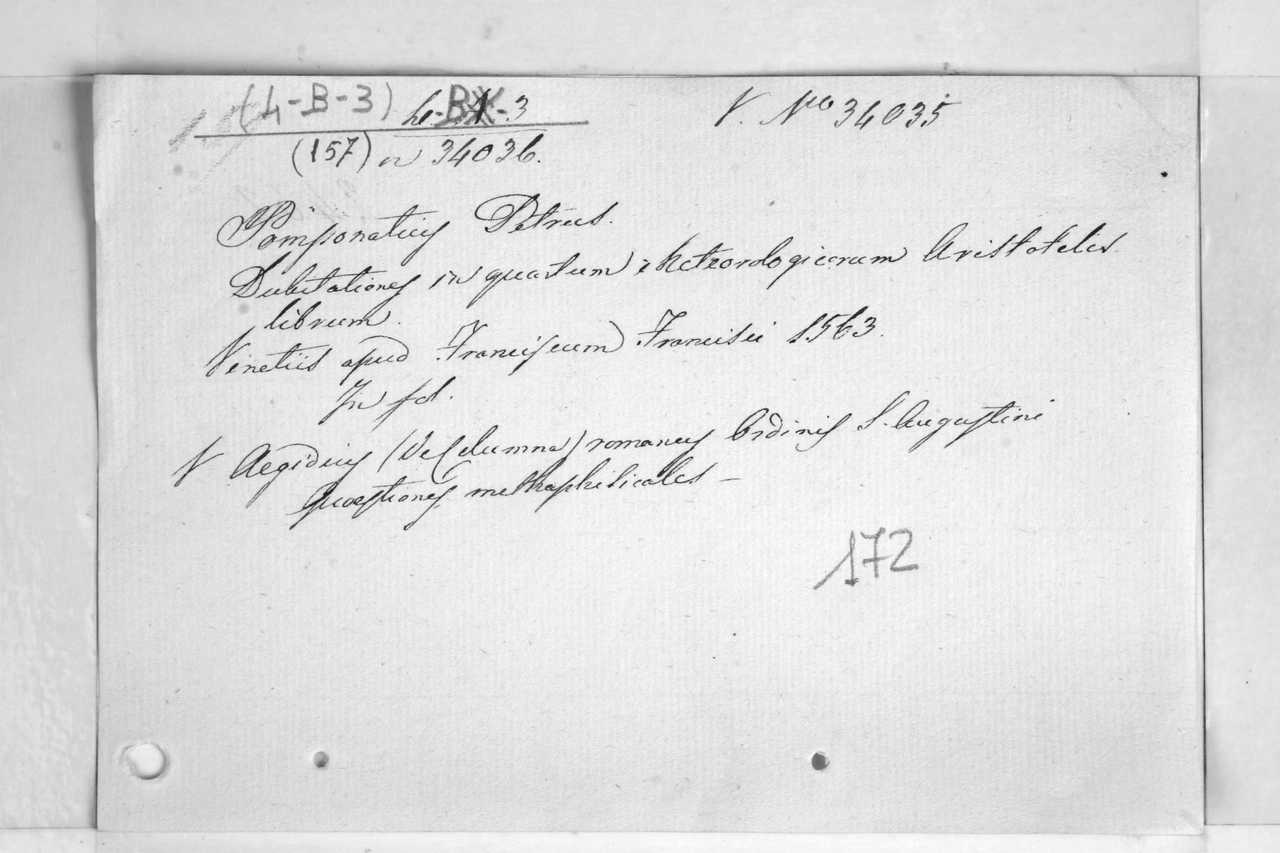 (4-B-3) h-B-1-3 V. No 34035
(157) 34036.
Pomponatius Petrus.
Dubitationes in quartum Meteorologicorum Aristotelis
librum.
Venetiis apud Franciscum Francisii 1563.
In fol.
V Aegidius (De Columna) romanus Ordinis S. Augustini
Quaestiones methaphisicales —
172